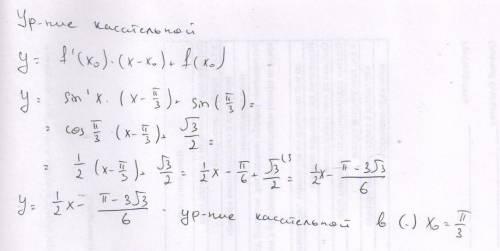 Ур-ние касательной
y = f'(x₀)·(x-x₀) + f(x₀)
y = sin'x · (x - π/3) + sin(π/3) =
= cos π/3 (x - π/3) + √3/2 =
= 1/2 (x - π/3) + √3/2 = 1/2 x - π/6 + √3/2 ⁽³ = 1/2 x - (π - 3√3)/6
y = 1/2 x - (π - 3√3)/6 - ур-ние касательной в (·) x₀ = π/3